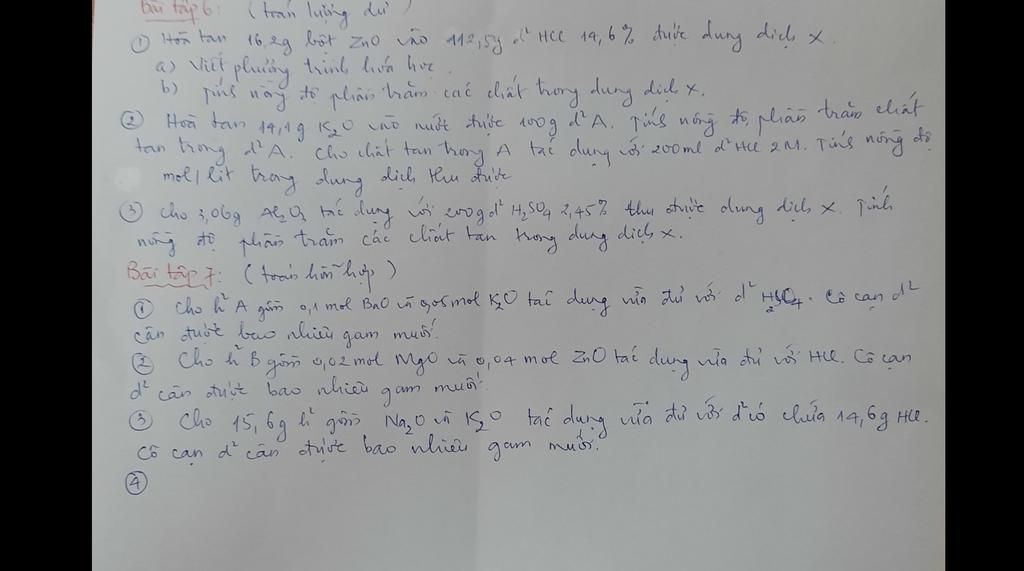 Bài tập 6: (toán lượng dư)
① Hoà tan 16,2g bột ZnO vào 112,5g d² HCl 14,6% được dung dịch X.
a) Viết phương trình hoá học.
b) Tính nồng độ phần trăm các chất trong dung dịch X.
② Hoà tan 14,1g K₂O vào nước được 100g d² A. Tính nồng độ phần trăm chất
tan trong d² A. Cho chất tan trong A tác dụng với 200ml d² HCl 2M. Tính nồng độ
mol/lit trong dung dịch thu được
③ Cho 3,06g Al₂O₃ tác dụng với 200g d² H₂SO₄ 2,45% thu được dung dịch X. Tính
nồng độ phần trăm các chất tan trong dung dịch X.
Bài tập 7: (toán hỗn hợp)
① Cho h² A gồm 0,1 mol BaO và 0,05 mol K₂O tác dụng vừa đủ với d² H₂SO₄. Cô cạn d²
cần được bao nhiêu gam muối.
② Cho h² B gồm 0,02 mol MgO và 0,04 mol ZnO tác dụng vừa đủ với HCl. Cô cạn
d² cần được bao nhiêu gam muối.
③ Cho 15,6g h² gồm Na₂O và K₂O tác dụng vừa đủ với d² có chứa 14,6g HCl.
Cô cạn d² cần được bao nhiêu gam muối.
④